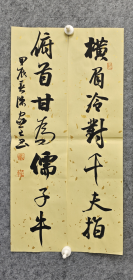 橫眉冷對千夫指
俯首甘為儒子牛
甲辰